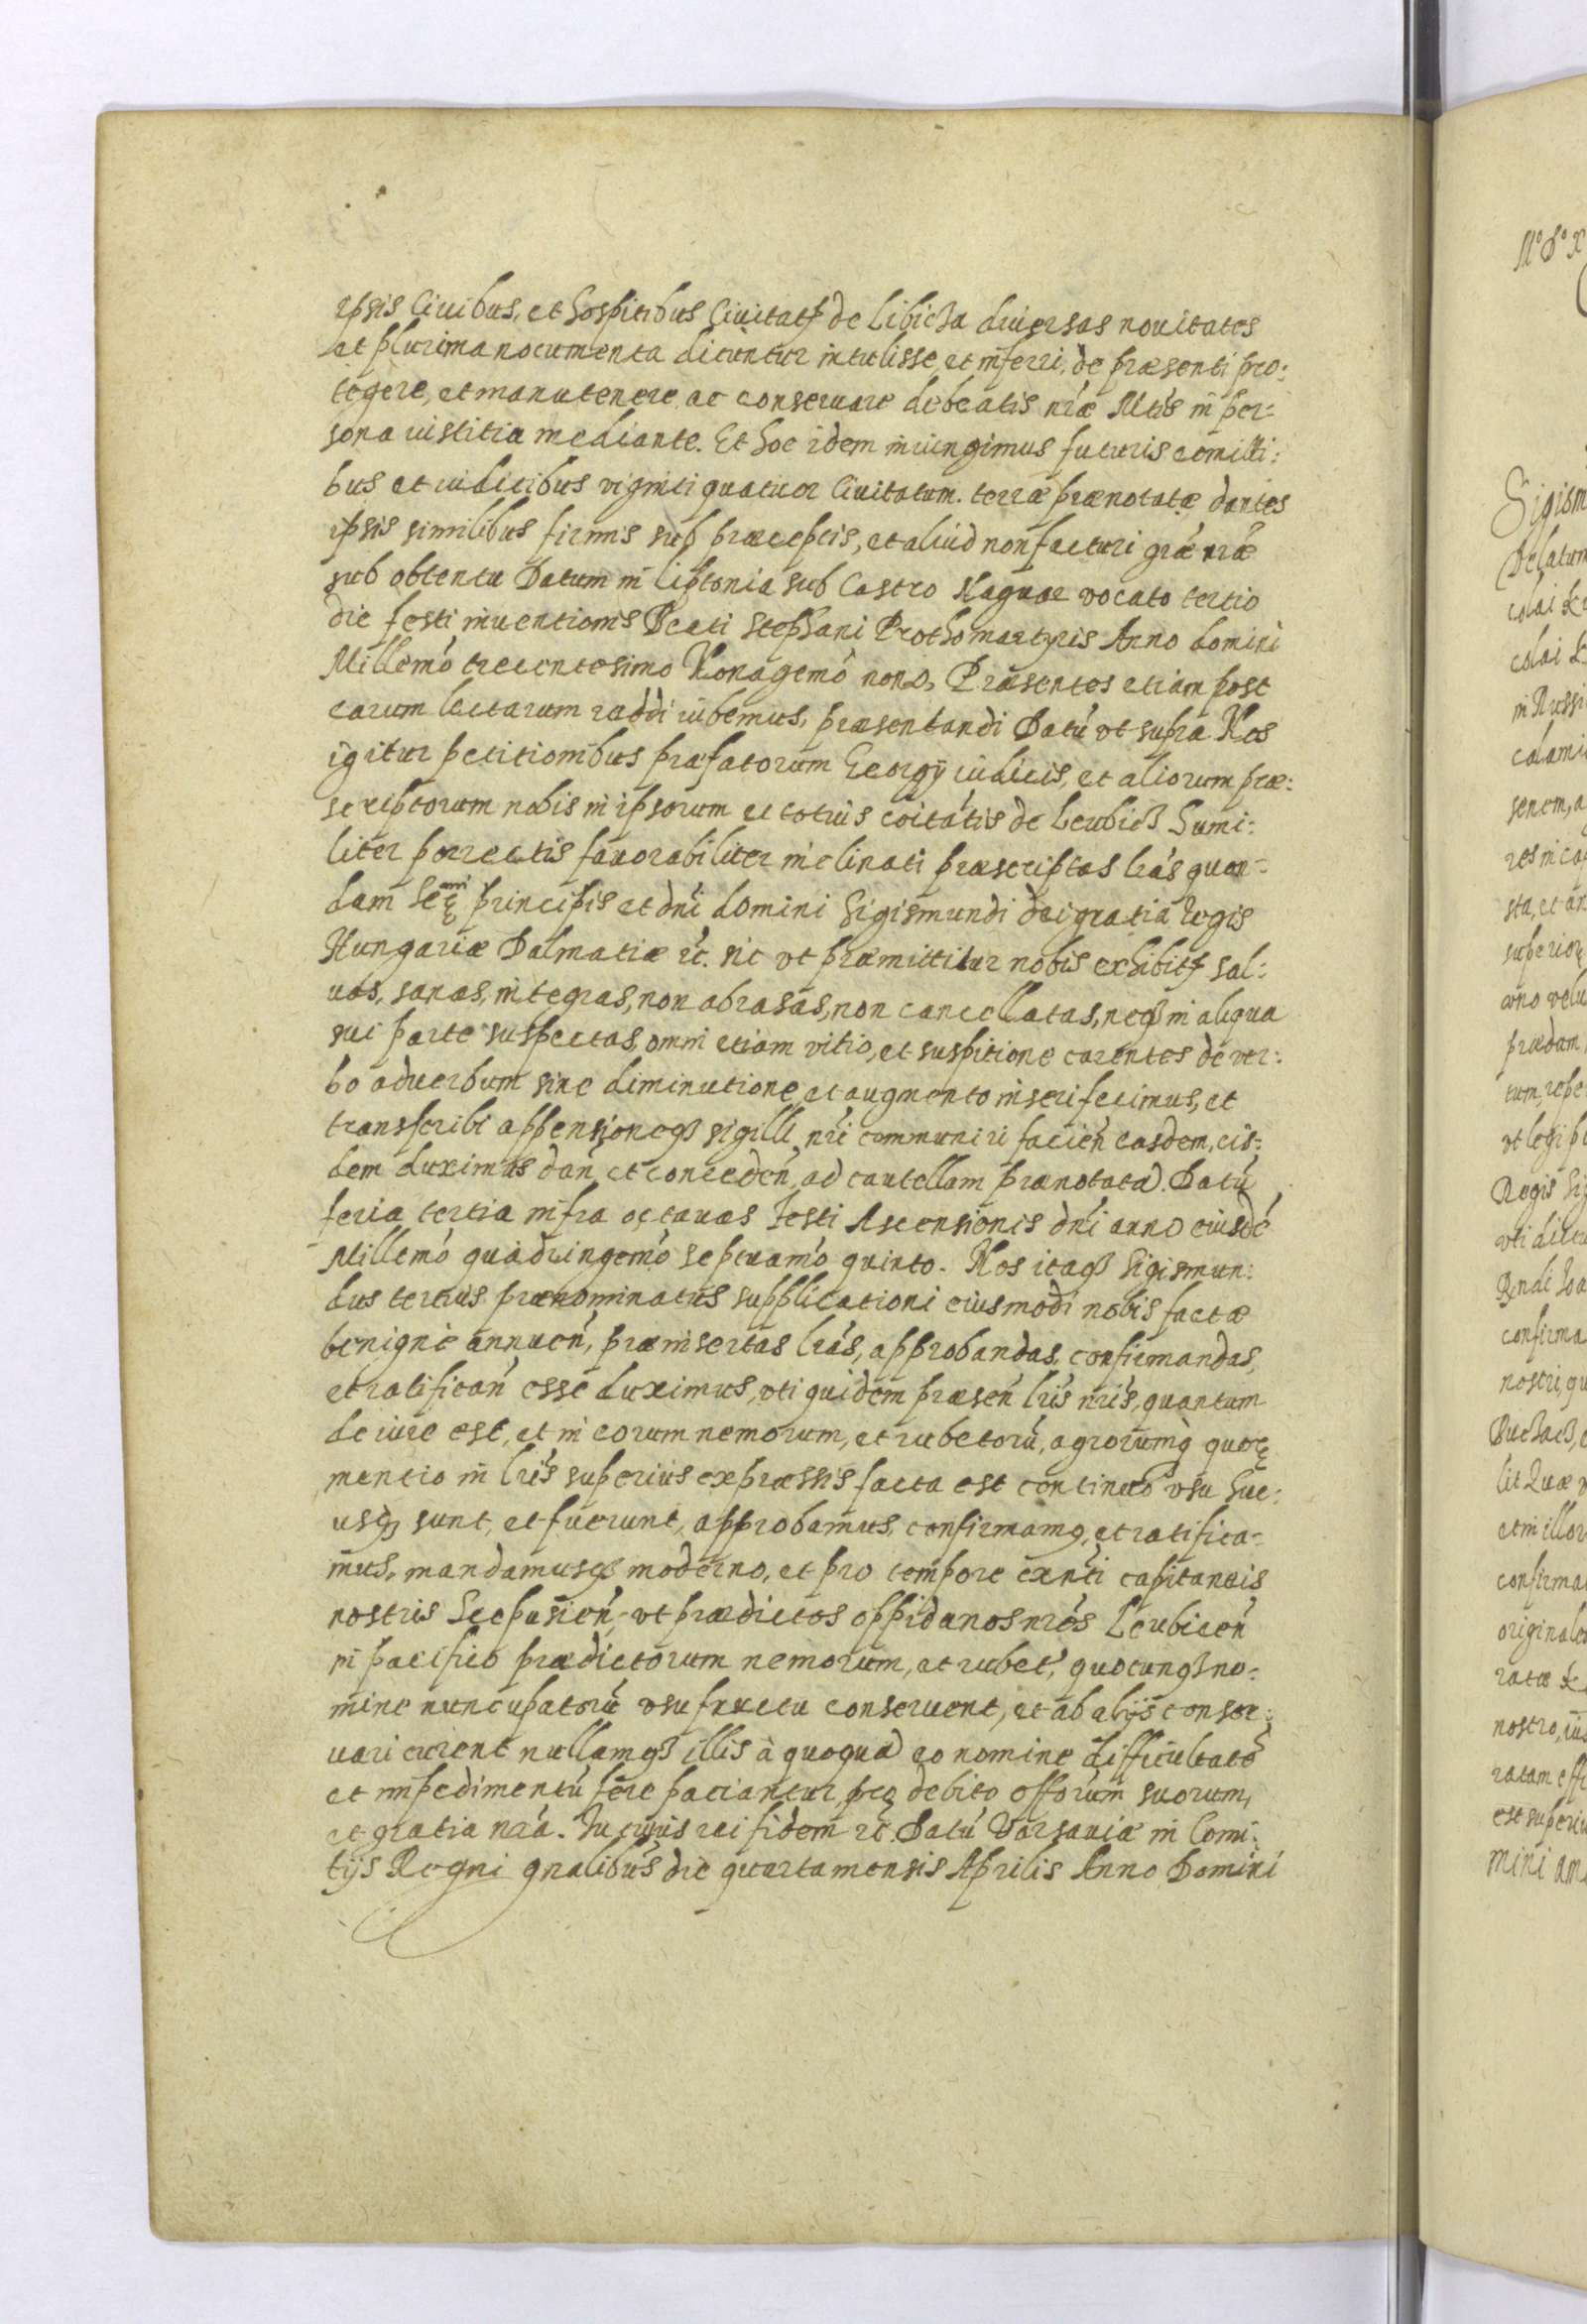 ipsis Ciuibus, et hospitibus Ciuitatis de Libicha diuersas nouitates
et plurima nocumenta dicuntur intulisse, et inferri, de præsenti pro:
tegere, et manutenere, ac conseruare debeatis nræ Mtis in per:
sona iustitia mediante. Et hoc idem iniungimus futuris comitti:
bus et iudicibus viginti quatuor Ciuitatum. terræ prænotatæ dantes
ipsis similibus firmis sub præceptis, et aliud non facturi græ nræ
sub obtentu Datum in Liptonia sub Castro Naguar vocato tertio
die festi inuentionis Beati Stephani Prothomartyris Anno domini
Millemo trecentesimo Nonagemo nono, Præsentes etiam post
earum lecturum raddi iubemus, præsentandi Datu vt supra Nos
igitur petitionibus præfatorum Georgij iudicis, et aliorum præ:
scriptorum nobis in ipsorum et totius coitatis de Leubicz humi:
liter porrectis fauorabiliter inclinati præscriptas lras quon:
dam principis et dni domini Sigismundi dei gratia Regis
Hungariæ Dalmatiæ rc. sic vt præmittitur nobis exhibitis sal:
uas, sanas, integras, non abrasas, non cancellatas, neq3 in aliqua
sui parte suspectas, omni etiam vitio, et suspitione carentes de ver:
bo aduerbum sine diminutione et augmento inseri fecimus, et
transscribi appensioneq3 sigilli nri communiri facien easdem, eis:
dem duximus dan et conceden, ad cautellam prænotata. Datu
feria tertia infra octauas festi Ascensionis dni anno eiusde
Millemo quadringemo septuamo quinto. Nos itaq3 Sigismun:
dus tertius prænominatus supplicationi eiusmodi nobis factæ
benigne annuen, præinsertas lras, approbandas, confirmandas,
et ratifican esse duximus, vti quidem præsen lris nris, quantum
de iure est, et in eorum nemorum, et rubetoru, agrorumq quorum
mentio in lris superius expræssis facta est continuo vsu huc:
usq3 sunt, et fuerunt, approbamus, confirmamq, et ratifica:
mus, mandamusq3 moderno, et pro tempore exnti capitaneis
nostris Scepusien, vt prædictos oppidanos nros Leubicen
in pacifico prædictorum nemorum, et rubet, quocunq3 no:
mine nuncupatoru vsufructu conseruent, et ab alijs conser:
uari curent nullamq3 illis à quoqua eo nomine difficultate
et impedimentu fere patiantur pro debito offorum suorum,
et gratia nra. In cuius rei fidem rc. Datu Varsauiæ in Comi:
tijs Regni gnalibus die quarta mensis Aprilis Anno Domini